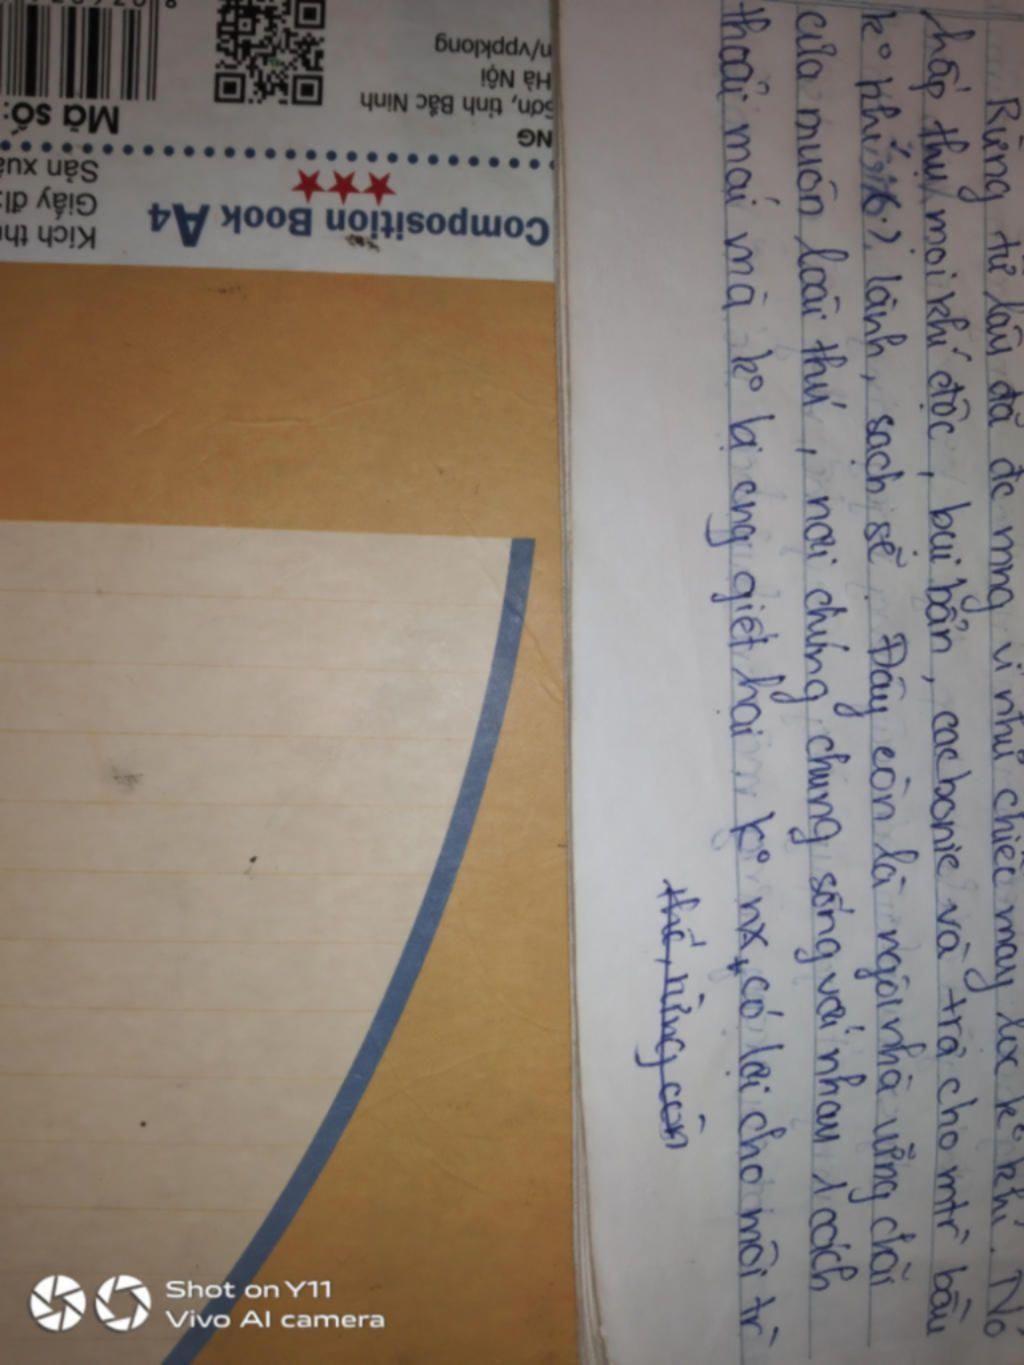 Rừng từ lâu đã đc mng ví như chiếc máy lọc kº khí. Nó
hấp thụ mọi khí độc, bụi bẩn, cacbonic và trả cho mtr bầu
kº khí lành, sạch sẽ. Đây còn là ngôi nhà vững chãi
của muôn loài thú, nơi chúng chung sống với nhau 1 cách
thoải mái mà kº bị cng giết hại kº nx, có lợi cho môi tr
thế, rừng còn
Composition Book A4
Kích th
Giấy đị
Sản xuấ
Mã số:
NG
Sơn, tỉnh Bắc Ninh
Hà Nội
n/vppklong
Shot on Y11
Vivo AI camera